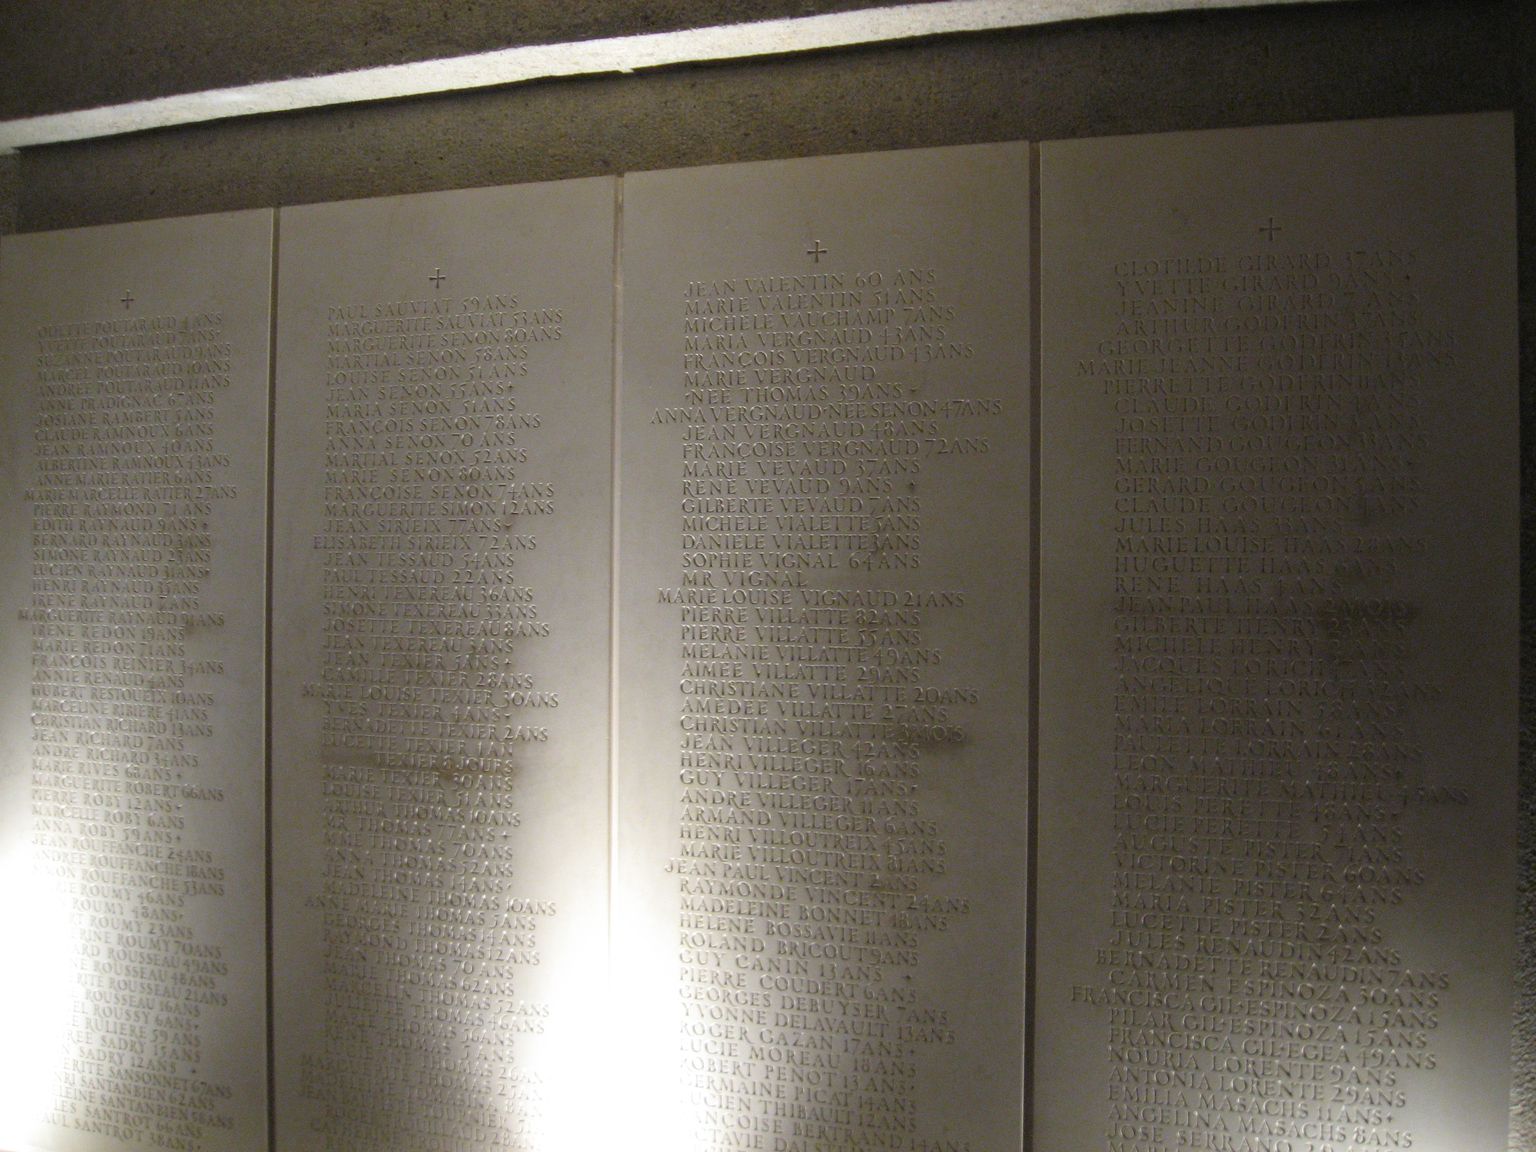 ODETTE POUTARAUD 4 ANS
YVETTE POUTARAUD 7 ANS
SUZANNE POUTARAUD 9 ANS
MARCEL POUTARAUD 10 ANS
ANDREE POUTARAUD 11 ANS
ANNE PRADIGNAC 67 ANS
JOSIANE RAMBERT 5 ANS
CLAUDE RAMNOUX 6 ANS
JEAN RAMNOUX 40 ANS
ALBERTINE RAMNOUX 43 ANS
ANNE MARIE RATIER 6 ANS
MARIE MARCELLE RATIER 27 ANS
PIERRE RAYMOND 71 ANS
EDITH RAYNAUD 9 ANS
BERNARD RAYNAUD ANS
SIMONE RAYNAUD ANS
LUCIEN RAYNAUD 31 ANS
HENRI RAYNAUD ANS
IRENE RAYNAUD ANS
MARGUERITE RAYNAUD ANS
IRENE REDON 19 ANS
MARIE REDON 71 ANS
FRANÇOIS REINIER 34 ANS
ANNIE RENAUD 4 ANS
HUBERT RESTOUEIX 10 ANS
MARCELINE RIBIERE 41 ANS
CHRISTIAN RICHARD 13 ANS
JEAN RICHARD 7 ANS
ANDRE RICHARD 34 ANS
MARIE RIVES 68 ANS
MARGUERITE ROBERT 66 ANS
PIERRE ROBY 12 ANS
MARCELLE ROBY 6 ANS
ANNA ROBY 59 ANS
JEAN ROUFFANCHE 24 ANS
ANDREE ROUFFANCHE 18 ANS
ROUFFANCHE 53 ANS
ROUMY 46 ANS
ROUMY 48 ANS
ROUMY 23 ANS
ROUMY 70 ANS
ROUSSEAU 49 ANS
ROUSSEAU 48 ANS
ROUSSEAU 21 ANS
ROUSSEAU 16 ANS
ROUSSY 6 ANS
RULIERE 59 ANS
SADRY 15 ANS
SADRY 12 ANS
SANSONNET 67 ANS
SANTANBIEN 62 ANS
SANTANBIEN 58 ANS
SANTROT 66 ANS
SANTROT 38 ANS
PAUL SAUVIAT 59 ANS
MARGUERITE SAUVIAT 53 ANS
MARGUERITE SENON 80 ANS
MARTIAL SENON 58 ANS
LOUISE SENON 51 ANS
JEAN SENON 55 ANS
MARIA SENON 51 ANS
FRANÇOIS SENON 78 ANS
ANNA SENON 70 ANS
MARTIAL SENON 52 ANS
MARIE SENON 80 ANS
FRANÇOISE SENON 74 ANS
MARGUERITE SIMON 12 ANS
JEAN SIRIEIX 77 ANS
ELISABETH SIRIEIX 72 ANS
JEAN TESSAUD 54 ANS
PAUL TESSAUD 22 ANS
HENRI TEXEREAU 36 ANS
SIMONE TEXEREAU 33 ANS
JOSETTE TEXEREAU 8 ANS
JEAN TEXEREAU ANS
JEAN TEXIER 5 ANS
CAMILLE TEXIER 28 ANS
MARIE LOUISE TEXIER 30 ANS
YVES TEXIER 4 ANS
BERNADETTE TEXIER 2 ANS
LUCETTE TEXIER 1 AN
TEXIER 8 JOURS
MARIE TEXIER 30 ANS
LOUISE TEXIER 51 ANS
ARTHUR THOMAS 10 ANS
MR THOMAS 77 ANS
MME THOMAS 70 ANS
ANNA THOMAS 32 ANS
JEAN THOMAS 14 ANS
MADELEINE THOMAS 10 ANS
ANNE MARIE THOMAS 5 ANS
GEORGES THOMAS 4 ANS
RAYMOND THOMAS 12 ANS
JEAN THOMAS 70 ANS
MARIE THOMAS 62 ANS
MARCELIN THOMAS ANS
THOMAS 72 ANS
THOMAS 36 ANS
JEAN VALENTIN 60 ANS
MARIE VALENTIN 51 ANS
MICHELE VAUCHAMP 7 ANS
MARIA VERGNAUD 43 ANS
FRANÇOIS VERGNAUD 43 ANS
MARIE VERGNAUD
NEE THOMAS 39 ANS
ANNA VERGNAUD·NEE SENON 47 ANS
JEAN VERGNAUD 48 ANS
FRANÇOISE VERGNAUD 72 ANS
MARIE VEVAUD 37 ANS
RENE VEVAUD 9 ANS
GILBERTE VEVAUD 7 ANS
MICHELE VIALETTE 5 ANS
DANIELE VIALETTE 3 ANS
SOPHIE VIGNAL 64 ANS
MR VIGNAL
MARIE LOUISE VIGNAUD 21 ANS
PIERRE VILLATTE 82 ANS
PIERRE VILLATTE 55 ANS
MELANIE VILLATTE 49 ANS
AIMEE VILLATTE 29 ANS
CHRISTIANE VILLATTE 20 ANS
AMEDEE VILLATTE 27 ANS
CHRISTIAN VILLATTE MOIS
JEAN VILLEGER 42 ANS
HENRI VILLEGER 16 ANS
GUY VILLEGER 17 ANS
ANDRE VILLEGER 11 ANS
ARMAND VILLEGER 6 ANS
HENRI VILLOUTREIX 45 ANS
MARIE VILLOUTREIX 81 ANS
JEAN PAUL VINCENT 2 ANS
RAYMONDE VINCENT 24 ANS
MADELEINE BONNET 18 ANS
HELENE BOSSAVIE 11 ANS
ROLAND BRICOUT 9 ANS
GUY CANIN 13 ANS
PIERRE COUDERT 6 ANS
GEORGES DEBUYSER 7 ANS
YVONNE DELAVAULT 13 ANS
ROGER GAZAN 17 ANS
LUCIE MOREAU 18 ANS
ROBERT PENOT 13 ANS
GERMAINE PICAT 14 ANS
LUCIEN THIBAULT 12 ANS
BERTRAND 14 ANS
CLOTILDE GIRARD 37 ANS
YVETTE GIRARD 9 ANS
JEANINE GIRARD 7 ANS
ARTHUR GODFRIN 37 ANS
GEORGETTE GODFRIN ANS
MARIE JEANNE GODFRIN ANS
PIERRETTE GODFRIN 11 ANS
CLAUDE GODFRIN ANS
JOSETTE GODFRIN ANS
FERNAND GOUGEON ANS
MARIE GOUGEON 31 ANS
GERARD GOUGEON 5 ANS
CLAUDE GOUGEON 4 ANS
JULES HAAS 33 ANS
MARIE LOUISE HAAS 28 ANS
HUGUETTE HAAS 6 ANS
RENE HAAS 4 ANS
JEAN PAUL HAAS MOIS
GILBERTE HENRY ANS
MICHELE HENRY ANS
JACQUES LORICH ANS
ANGELIQUE LORICH ANS
EMILE LORRAIN 58 ANS
MARIA LORRAIN 61 ANS
PAULETTE LORRAIN 28 ANS
LEON MATHIEU 48 ANS
MARGUERITE MATHIEU 45 ANS
LOUIS PERETTE 48 ANS
LUCIE PERETTE 54 ANS
AUGUSTE PISTER 71 ANS
VICTORINE PISTER 60 ANS
MELANIE PISTER 64 ANS
MARIA PISTER 32 ANS
LUCETTE PISTER 2 ANS
JULES RENAUDIN 42 ANS
BERNADETTE RENAUDIN 7 ANS
CARMEN ESPINOZA 30 ANS
FRANCISCA GIL·ESPINOZA 15 ANS
PILAR GIL·ESPINOZA 15 ANS
FRANCISCA GIL·EGEA 49 ANS
NOURIA LORENTE 9 ANS
ANTONIA LORENTE 29 ANS
EMILIA MASACHS 11 ANS
ANGELINA MASACHS 8 ANS
JOSE SERRANO